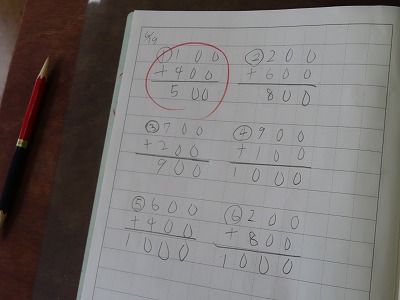 6/9
① 100
+400
500
② 200
+600
800
③ 700
+200
900
④ 900
+100
1000
⑤ 600
+400
1000
⑥ 200
+800
1000